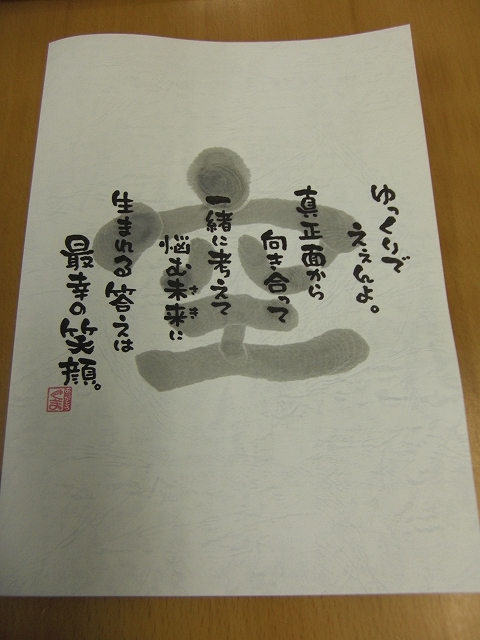 ゆっくりで
ええんよ。
真正面から
向き合って
一緒に考えて
悩む未来に
さき
生まれる答えは
最幸の笑顔。
空